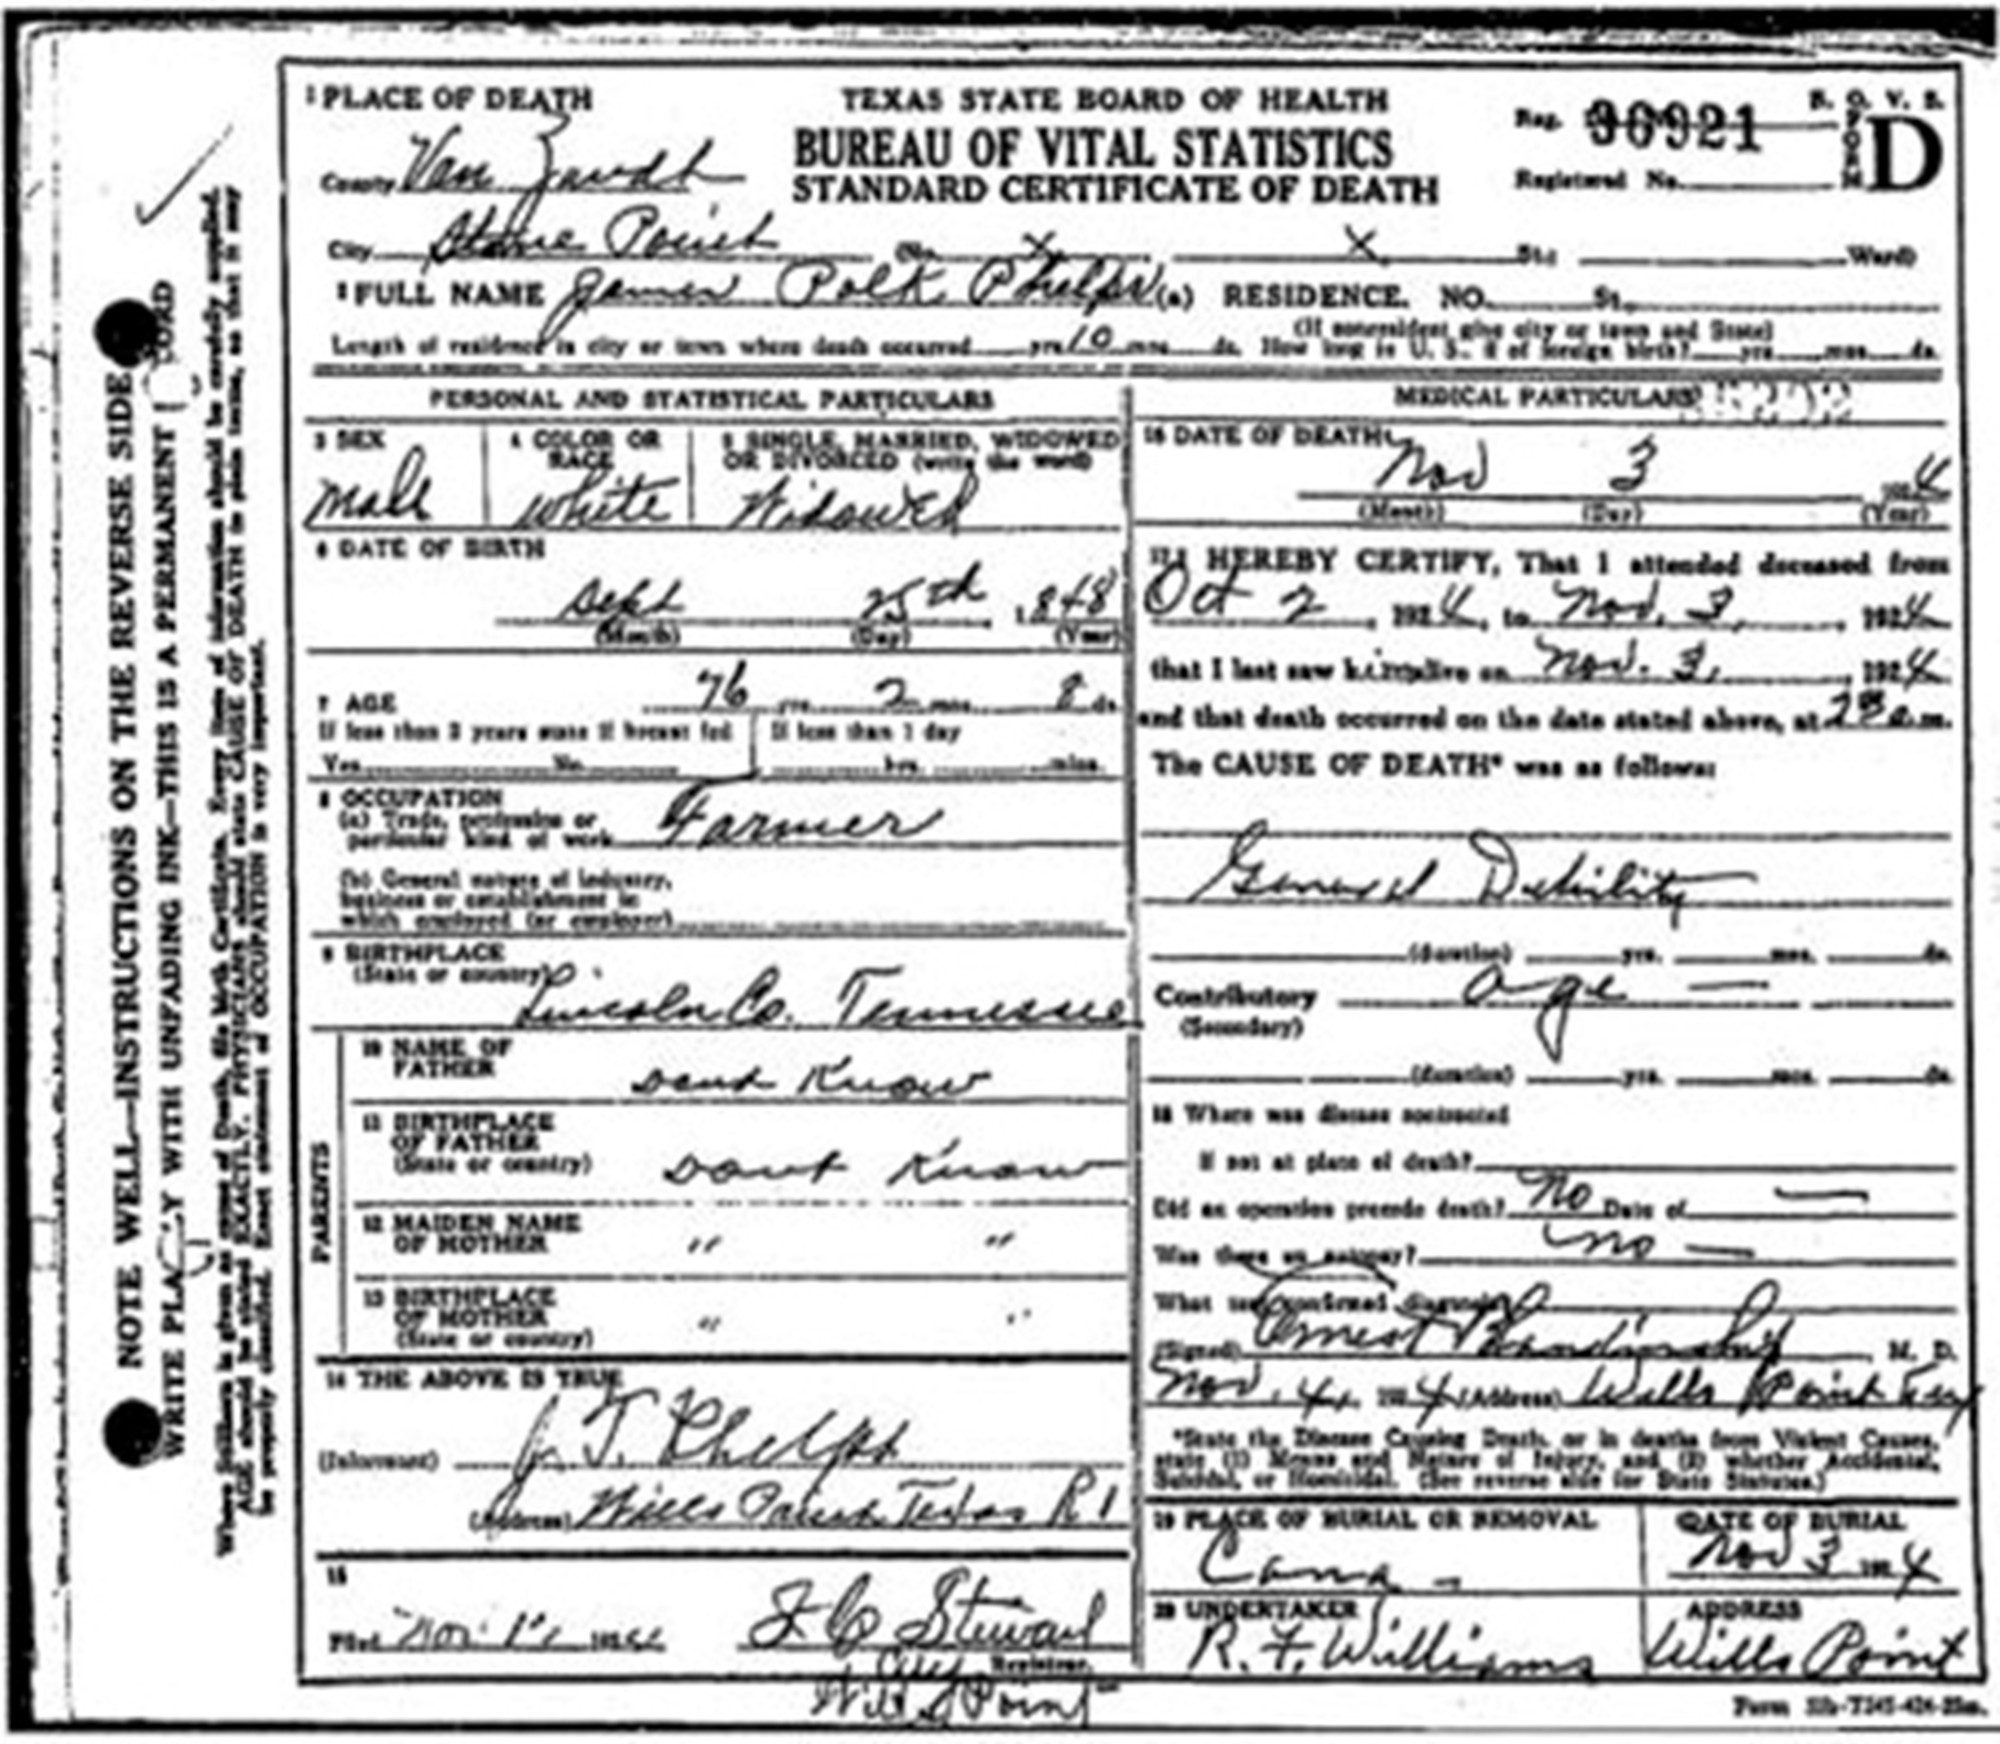 1 PLACE OF DEATH
TEXAS STATE BOARD OF HEALTH
BUREAU OF VITAL STATISTICS
STANDARD CERTIFICATE OF DEATH
Reg. 30921
B. O. V. S.
FORM D
Registered No.
County Van Zandt
City Stone Point (No. X X St.; Ward)
2 FULL NAME James Polk Phelps (a) RESIDENCE. NO. St.
(If nonresident give city or town and State)
Length of residence in city or town where death occurred yrs. 10 mos. ds. How long in U. S., if of foreign birth? yrs. mos. ds.
PERSONAL AND STATISTICAL PARTICULARS
3 SEX
Male
4 COLOR OR RACE
white
5 SINGLE, MARRIED, WIDOWED
OR DIVORCED (write the word)
Widowed
6 DATE OF BIRTH
Sept 25th, 1848
(Month) (Day) (Year)
7 AGE 76 yrs. 2 mos. 8 ds.
If less than 2 years state if breast fed
Yes No
If less than 1 day
hrs. mins.
8 OCCUPATION
(a) Trade, profession or
particular kind of work Farmer
(b) General nature of industry,
business or establishment in
which employed (or employer)
9 BIRTHPLACE
(State or country)
Lincoln Co. Tennessee
PARENTS
10 NAME OF
FATHER dont Know
11 BIRTHPLACE
OF FATHER
(State or country) dont Know
12 MAIDEN NAME
OF MOTHER " "
13 BIRTHPLACE
OF MOTHER
(State or country) " "
14 THE ABOVE IS TRUE
(Informant) J. T. Phelps
(Address) Wills Point Texas R 1
15
Filed Nov 192
Stewart
Registrar.
Wills Point
MEDICAL PARTICULARS
16 DATE OF DEATH
Nov 3 1924
(Month) (Day) (Year)
17 I HEREBY CERTIFY, That I attended deceased from
Oct 2, 1924, to Nov. 3, 1924
that I last saw him alive on Nov. 3, 1924
and that death occurred on the date stated above, at a. m.
The CAUSE OF DEATH* was as follows:
General Debility
(duration) yrs. mos. ds.
Contributory age —
(Secondary)
(duration) yrs. mos. ds.
18 Where was disease contracted
if not at place of death?
Did an operation precede death? No Date of —
Was there an autopsy? no —
What test confirmed diagnosis?
(Signed) Ernest Blankinship, M. D.
Nov. 4, 1924 (Address) Wills Point Tex
*State the Disease Causing Death, or in deaths from Violent Causes,
state (1) Means and Nature of Injury, and (2) whether Accidental,
Suicidal, or Homicidal. (See reverse side for State Statutes.)
19 PLACE OF BURIAL OR REMOVAL
Cana -
DATE OF BURIAL
Nov 3 1924
20 UNDERTAKER
R. F. Williams
ADDRESS
Wills Point
NOTE WELL—INSTRUCTIONS ON THE REVERSE SIDE
WRITE PLAINLY WITH UNFADING INK—THIS IS A PERMANENT RECORD
Every item of information should be carefully supplied.
AGE should be stated EXACTLY. PHYSICIANS should state CAUSE OF DEATH in plain terms, so that it may
be properly classified. Exact statement of OCCUPATION is very important.